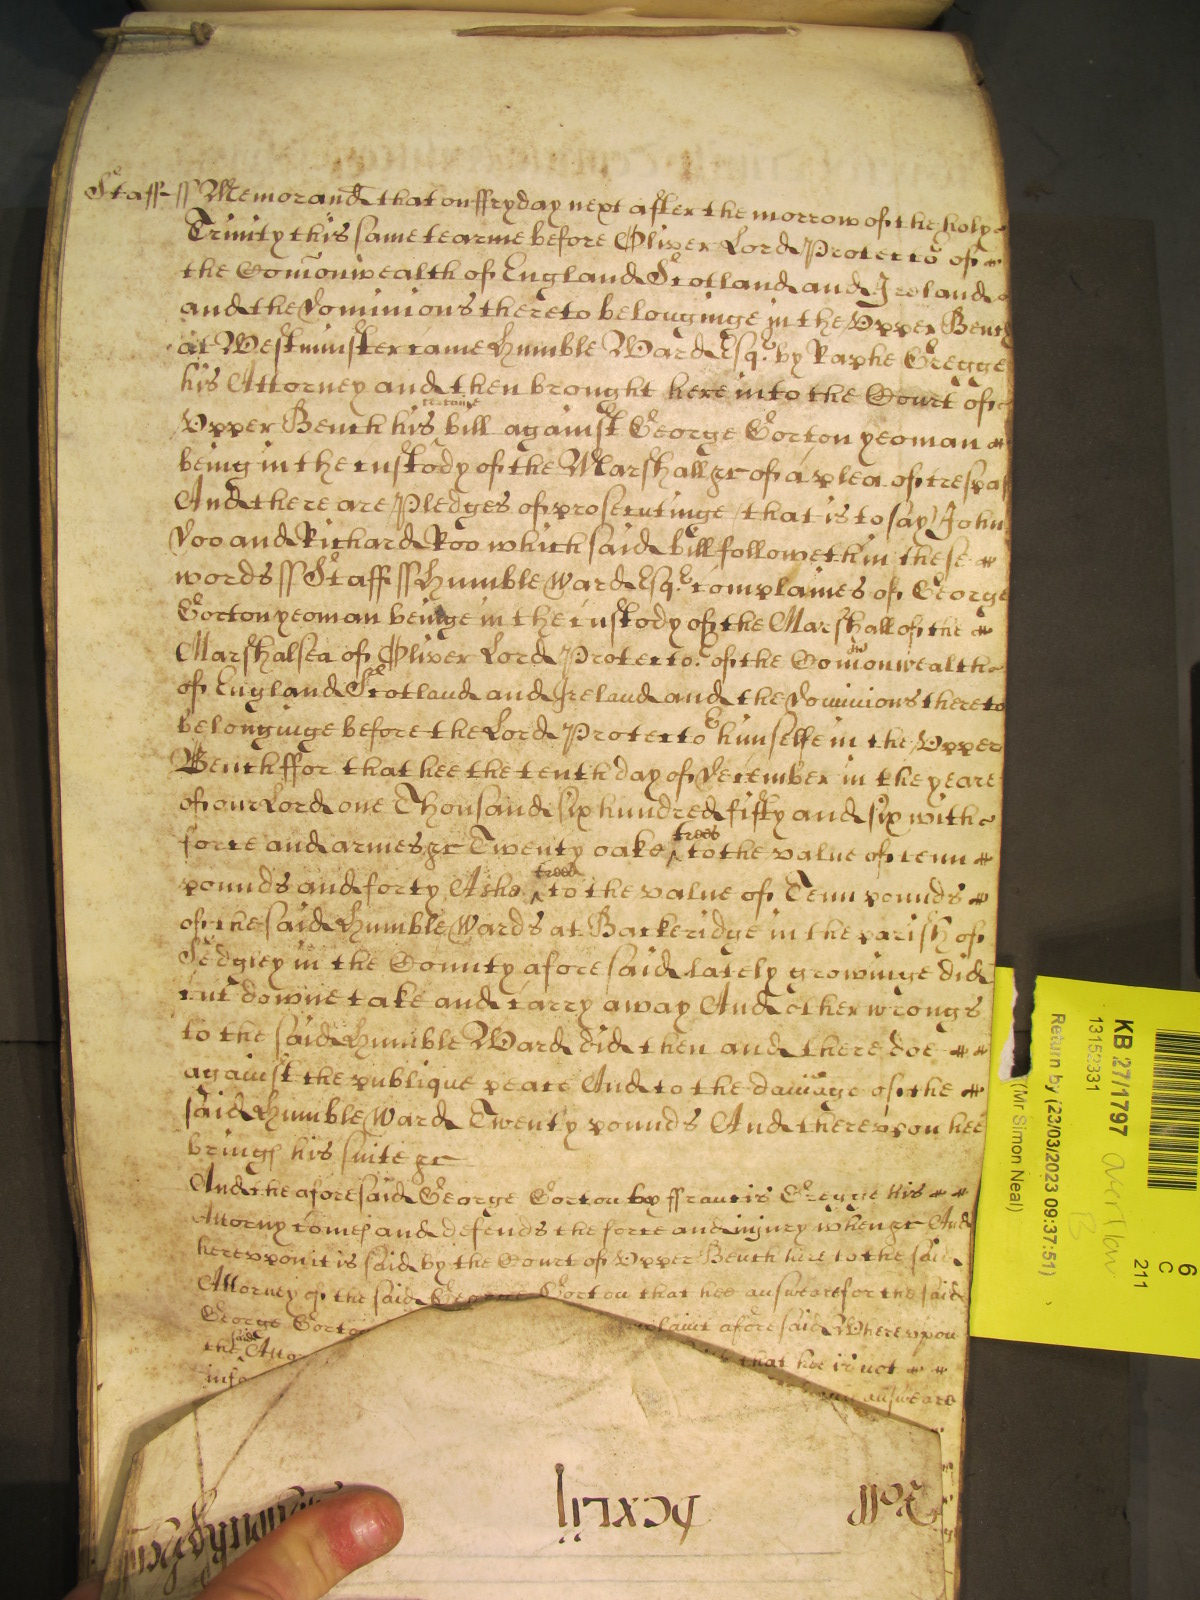 Staff ss Memorand that on ffryday next after the morrow of the holy
Trinity this same tearme before Oliver Lord Protector of
the Comonwealth of England Scotland and Ireland
and the Dominions thereto belonginge in the Upper Bench
at Westminster came Humble Ward Esqr. by Raphe Gregge
his Attorney and then brought here into the Court of
Upper Bench his certaine bill against George Gorton yeoman
being in the custody of the Marshall &c of a plea of trespas
And there are Pledges of prosecutinge (that is to say) John
Doo and Richard Roo which said bill followeth in these
words ss Staff ss Humble Ward Esqr. complaines of George
Gorton yeoman beinge in the custody of the Marshall of the
Marshalsea of Oliver Lord Protector of the Comonwealth
of England Scotland and Ireland and the Dominions thereto
belonginge before the Lord Protector himselfe in the Upper
Bench ffor that hee the tenth day of December in the yeare
of our Lord one Thousand six hundred fifty and six with
force and armes &c Twenty oake trees to the value of tenn
pounds and forty Ashe trees to the value of Tenn pounds
of the said Humble Wards at Backeridge in the parish of
Sedgley in the County aforesaid lately growinge did
cut downe take and carry away And other wrongs
to the said Humble Ward did then and there doe
against the publique peace And to the damage of the
said Humble Ward Twenty pounds And thereupon hee
brings his suite &c
And the aforesaid George Gorton by ffrancis Gregge his
Attorny comes and defends the force and injury when &c And
hereuppon it is said by the Court of Upper Bench here to the said
Attorney of the said George Gorton that hee answeare for the said
George Gorto plaint aforesaid Whereupon
the said Atto that hee is not
info answeare
Roll
KB 27/1797
13152331
Return by (23/03/2023 09:37:51)
(Mr Simon Neal)
6
C
211
B